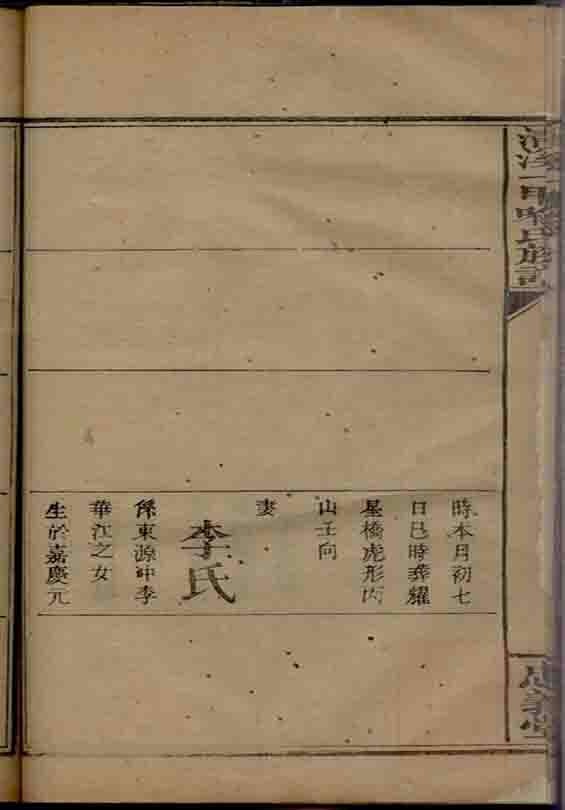 時本月初七
日巳時葬耀
星橋虎形丙
山壬向
妻
李氏
係東源冲李
華江之女
生於嘉慶元